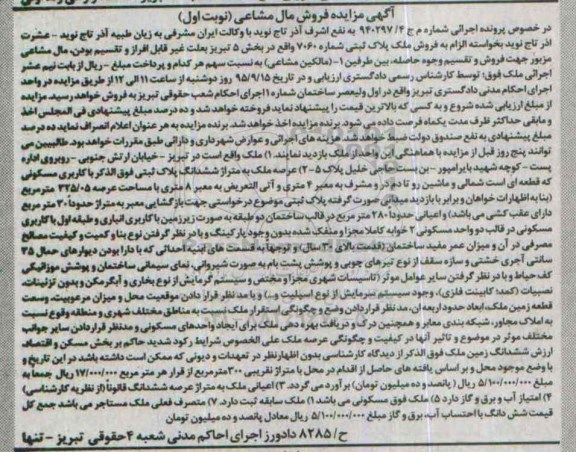 آگهی مزایده فروش مال مشاعی (نوبت اول)
در خصوص پرونده اجرائی شماره م ج ۴/ ۹۴۰۲۹۷ به نفع اشرف آذر تاج نوید با وکالت ایران مشرقی به زیان طیبه آذر تاج نوید - عشرت
آذر تاج نوید بخواسته الزام به فروش ملک پلاک ثبتی شماره ۷۰۶۰ واقع در بخش ۵ تبریز بعلت غیر قابل افراز و تقسیم بودن، مال مشاعی
مزبور جهت فروش و تقسیم وجوه حاصله، بین طرفین ۱- (مالکین مشاعی) به نسبت سهم هر کدام و پرداخت مبلغ - ریال از بابت نیم عشر
اجرائی ملک فوق: توسط کارشناس رسمی دادگستری ارزیابی و در تاریخ ۹۵/۹/۱۵ روز دوشنبه از ساعت ۱۱ الی ۱۲ از طریق مزایده در واحد
اجرای احکام مدنی دادگستری تبریز واقع در اول ولیعصر ساختمان شماره ۱ اجرای احکام شعب حقوقی تبریز به فروش خواهد رسید. مزایده
از مبلغ ارزیابی شده شروع و به کسی که بالاترین قیمت را پیشنهاد نماید فروخته خواهد شد و ده درصد مبلغ پیشنهادی فی المجلس اخذ
و مابقی حداکثر ظرف مدت یکماه فرصت داده می شود. برنده مزایده اخذ خواهد شد. برنده مزایده به هر عنوان اعلام انصراف نماید ده درصد
مبلغ پیشنهادی به نفع صندوق دولت ضبط خواهد شد. هزینه های اجرائی و عوارض شهرداری و دارائی طبق مقررات خواهد بود. طالبیین می
توانند پنج روز قبل از مزایده با هماهنگی این واحد از ملک بازدید نمایند. ۱) ملک واقع است در تبریز - خیابان ارتش جنوبی - روبروی اداره
پست - کوچه شهید بایرامپور - بن بست حاجی خلیل پلاک ۵ -۲) عرصه ملک به متراژ ششدانگ پلاک ثبتی فوق الذکر با کاربری مسکونی
که قطعه ای است شمالی و ماشین رو تا دم در و مشرف به معبر ۴ متری و آتی التعریض به معبر ۸ متری با مساحت عرصه ۳۳۵/۰۵ متر مربع
(بنا به اظهارات خواهان و برابر با بازدید میدانی صورت گرفته پلاک ثبتی موضوع درخواستی جهت بازگشایی معبر به متراژ حدوداً ۳۰ متر مربع
دارای عقب کشی می باشد) و اعیانی حدوداً ۲۸۰ متر مربع در قالب ساختمان دو طبقه به صورت زیرزمین با کاربری انباری و طبقه اول با کاربری
مسکونی در قالب دو واحد مسکونی ۲ خوابه کاملا مجزا و منفک شده بدون وجود پارکینگ و با در نظر گرفتن نوع بنا و کمیت و کیفیت مصالح
مصرفی در آن و میزان عمر مفید ساختمان (قدمت بالای ۳۰ سال) و توجها به قسمت های ابنیه احداثی که با دارا بودن دیوارهای حمال ۳۵
سانتی آجری خشتی و سازه سقف از نوع تیرهای چوبی و پوشش پشت بام به صورت شیروانی، نمای سیمانی ساختمان و پوشش موزائیکی
کف حیاط و با در نظر گرفتن سایر عوامل موثر (تاسیسات شهری مجزا و مختص و سیستم گرمایش از نوع بخاری و آبگرمکن و بدون تزئینات،
نصبیات (کمد، کابینت فلزی)، وجود سیستم سرمایش از نوع اسپلیت و...) و با مد نظر قرار دادن موقعیت محل و میزان مرغوبیت، وسعت
قطعه زمین ملک، ابعاد حدود اربعه ان، مد نظر قراردادن وضع و چگونگی استقرار ملک نسبت به مناطق مختلف شهری و منطقه وقوع نسبت
به املاک مجاور، شبکه بندی معابر و همچنین درک و دریافت بهره دهی ملک برای ایجاد واحدهای مسکونی و مدنظر قراردادن سایر جوانب
مختلف موثر در موضوع و تاثیر آنها در کیفیت و چگونگی عرصه ملک علی الخصوص شرایط رکود شدید حاکم بر بخش مسکن و اقتصاد
ارزش ششدانگ زمین ملک فوق الذکر از دیدگاه کارشناسی بدون اظهارنظر در تعهدات و دیونی که ممکن است داشته باشد در این تاریخ و
با وضع موجود محل و بر اساس یافته های حاصل از اقدام در محل با متراژ تقریبی ۳۰۰ مترمربع از قرار هر متر مربع ۱۷/۰۰۰/۰۰۰ ریال جمعاً به
مبلغ ۵/۱۰۰/۰۰۰/۰۰۰ ریال (پانصد و ده میلیون تومان) بر آورد می گردد. ۳) اعیانی ملک به متراژ عرصه ششدانگ قانوناً (از نظریه کارشناسی)
۴) امتیاز آب و برق و گاز دارد ۵) ملک فوق مسکونی می باشد ۶) ملک سابقه ثبت دارد. ۷) متصرف فعلی ملک مستاجر می باشد جمع کل
قیمت شش دانگ با احتساب آب، برق و گاز مبلغ ۵/۱۰۰/۰۰۰/۰۰۰ ریال معادل پانصد و ده میلیون تومان
ح/ ۸۲۸۵ دادورز اجرای احکام مدنی شعبه ۴ حقوقی تبریز - تنها